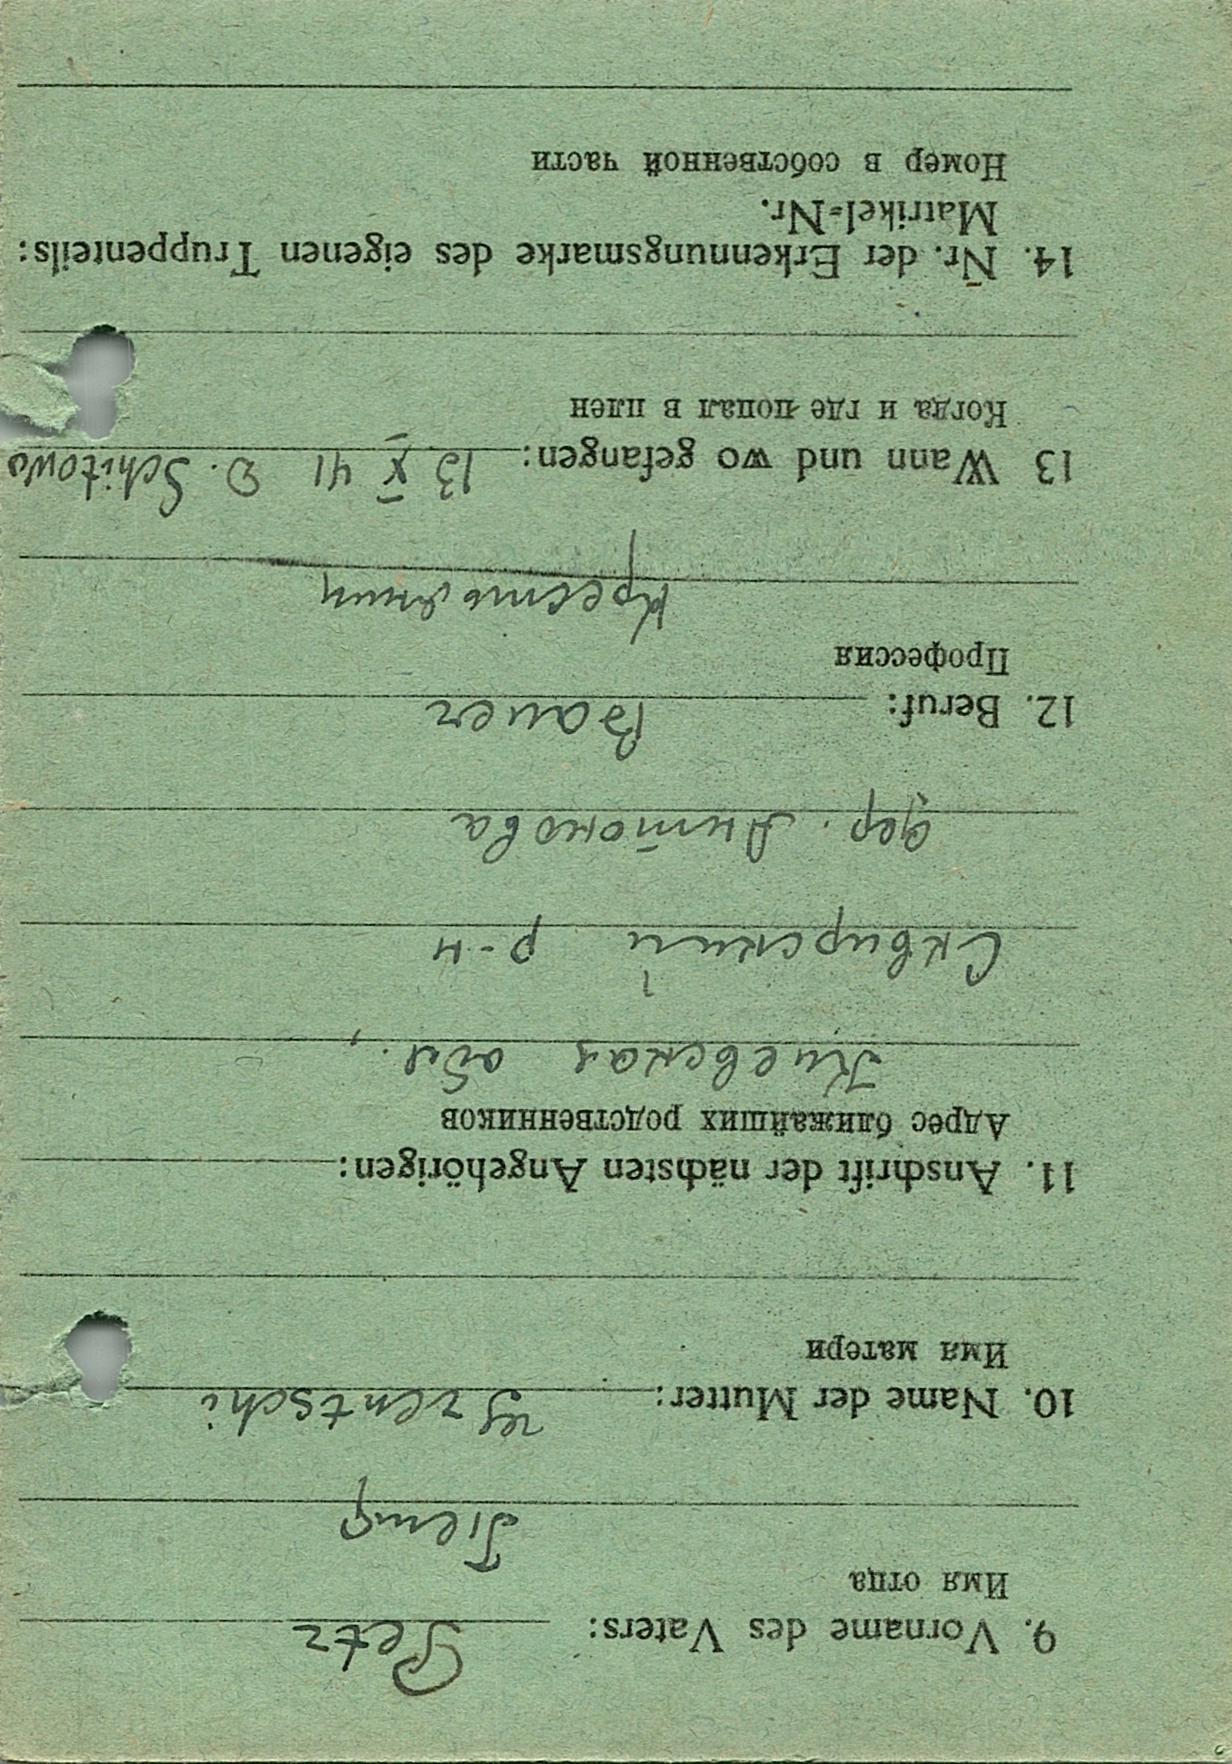 9. Vorname des Vaters: Petr
Имя отца
Петр
10. Name der Mutter:
Имя матери
11. Anschrift der nächsten Angehörigen:
Адрес ближайших родственников
Киевская обл.,
Сквирский р-н
дер. Антонова
12. Beruf: Bauer
Профессия
Крестьянин
13 Wann und wo gefangen: 13 X 41 D. Schitowo
Когда и где попал в плен
14. Nr. der Erkennungsmarke des eigenen Truppenteils:
Matrikel-Nr.
Номер в собственной части